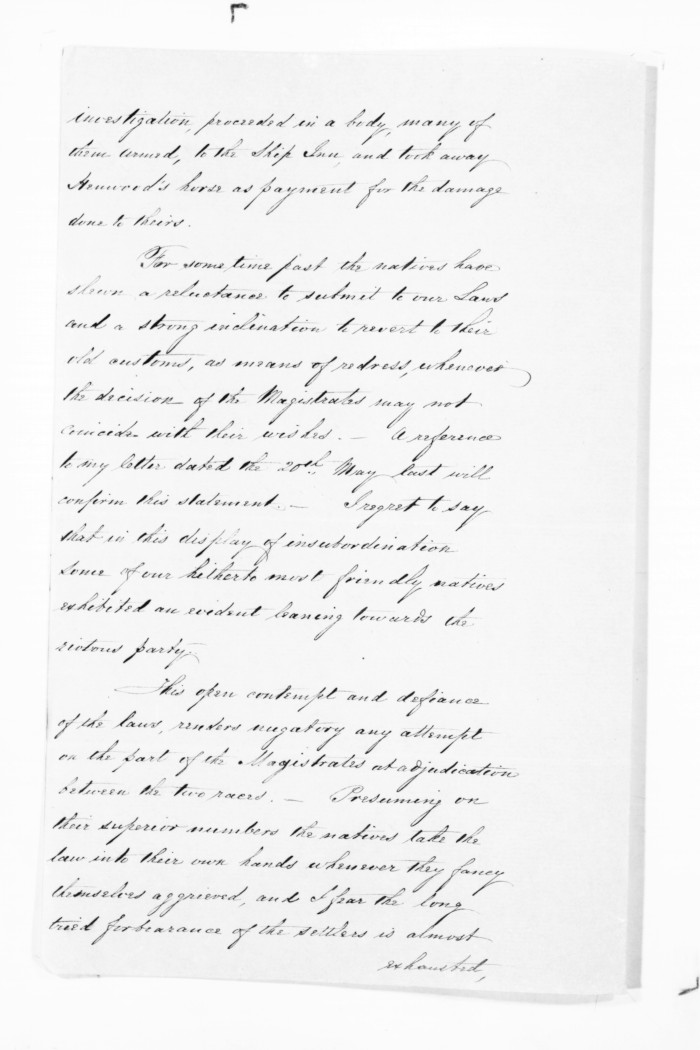 investigation, proceeded in a body, many of
them armed, to the Ship Inn, and took away
Henwood's horse as payment for the damage
done to theirs.
For some time past the natives have
shewn a reluctance to submit to our Laws
and a strong inclination to revert to their
old customs, as means of redress, whenever
the decision of the Magistrates may not
coincide with their wishes. — A reference
to my letter dated the 20th May last will
confirm this statement. — I regret to say
that in this display of insubordination
some of our hitherto most friendly natives
exhibited an evident leaning towards the
riotous party.
This open contempt and defiance
of the laws, renders nugatory any attempt
on the part of the Magistrates at adjudication
between the two races. — Presuming on
their superior numbers the natives take the
law into their own hands whenever they fancy
themselves aggrieved, and I fear the long
tried forbearance of the settlers is almost
exhausted,